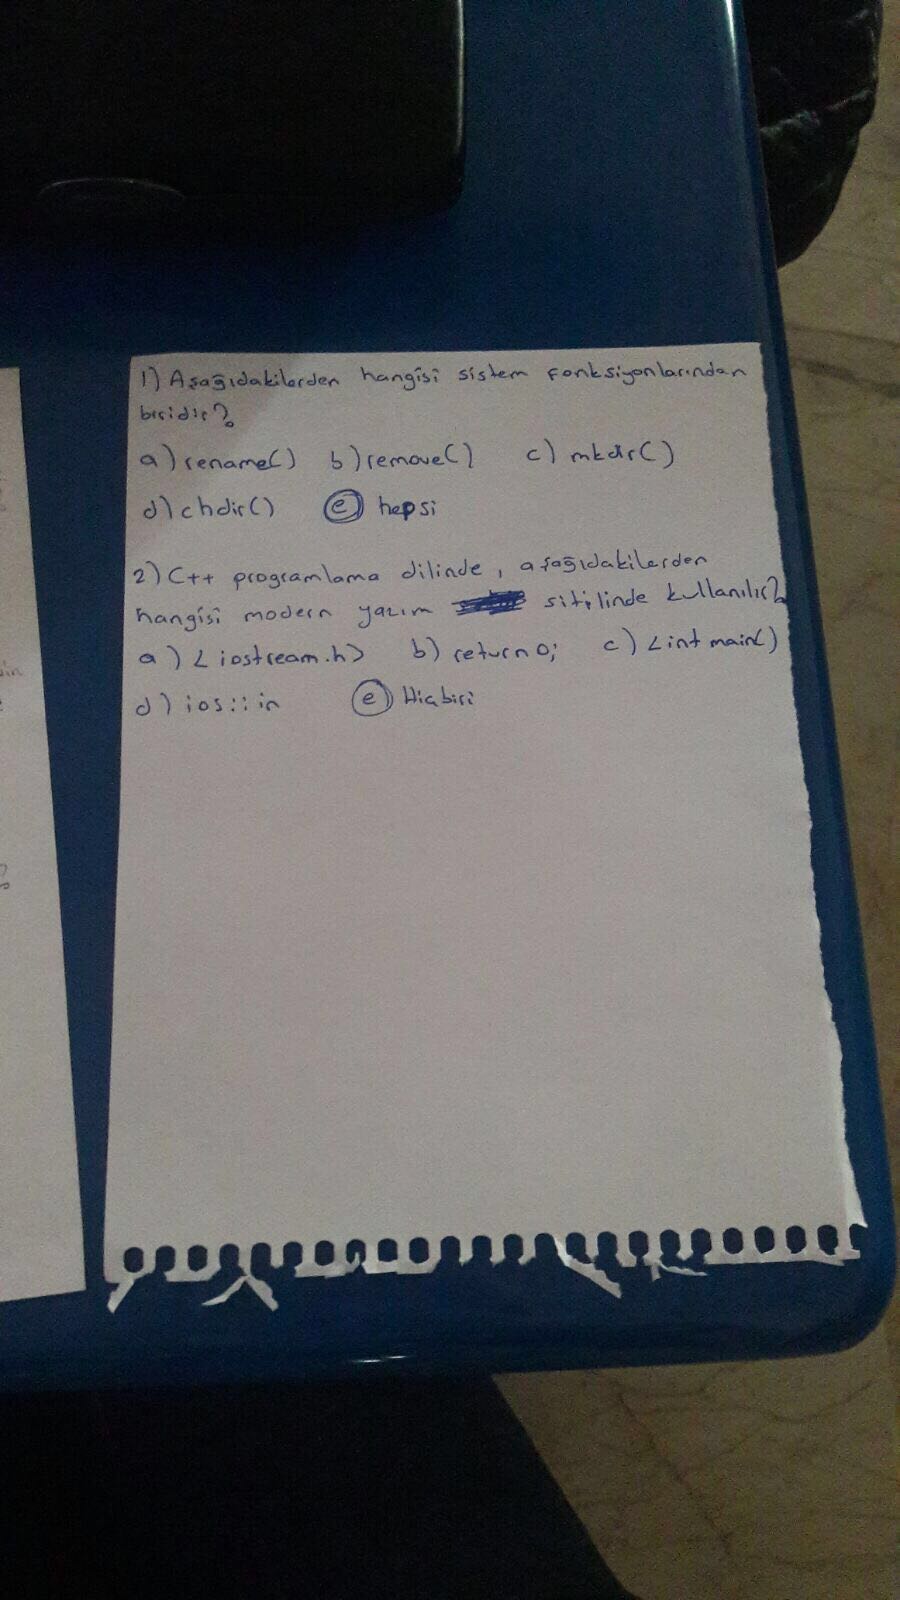 1) Aşağıdakilerden hangisi sistem fonksiyonlarından
biridir?
a) rename() b) remove() c) mkdir()
d) chdir() e) hepsi
2) C++ programlama dilinde, aşağıdakilerden
hangisi modern yazım sitilinde kullanılır?
a) <iostream.h> b) return 0; c) <int main()
d) ios::in e) Hiçbiri